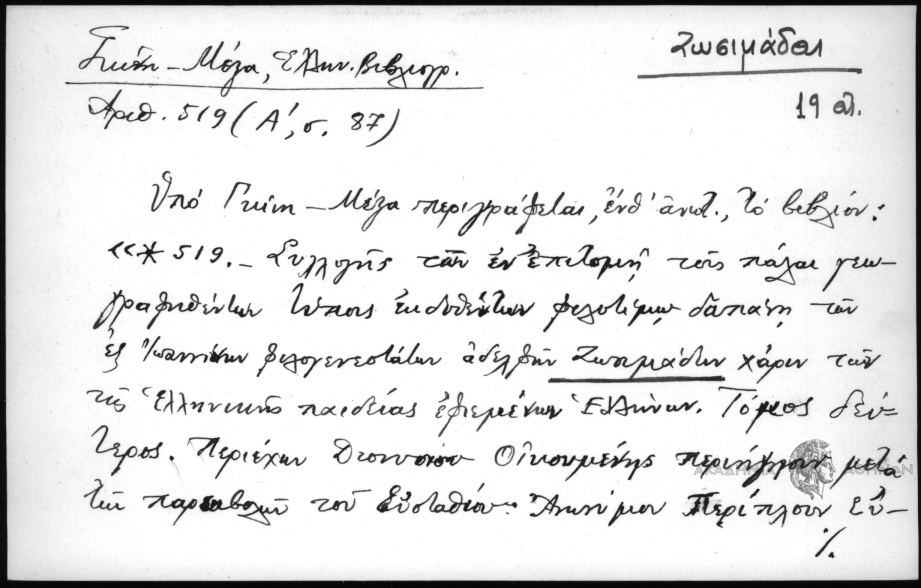 Ζωσιμάδαι
Γκίνη – Μέξα, Ἑλλην. Βιβλιογρ.
19 αἰ.
Ἀριθ. 519 (Α', σ. 87)
Ὑπό Γκίνη – Μέξα περιγράφεται, ἐνθ' ἀνωτ., τό βιβλίον:
«* 519. – Συλλογῆς τῶν ἐν ἐπιτομῇ τοῖς πάλαι γεω-
γραφηθέντων τύποις ἐκδοθέντων φιλοτίμῳ δαπάνῃ τῶν
ἐξ Ἰωαννίνων φιλογενεστάτων ἀδελφῶν Ζωσιμάδων χάριν τῶν
τῆς Ἑλληνικῆς παιδείας ἐφιεμένων Ἑλλήνων. Τόμος δεύ-
τερος. Περιέχων Διονυσίου Οἰκουμένης περιήγησιν μετά
τῶν παρεκβολῶν τοῦ Εὐσταθίου· Ἀνωνύμου Περίπλουν Εὐ-
ΑΚΑΔΗΜΙΑ ΑΘΗΝΩΝ
./.